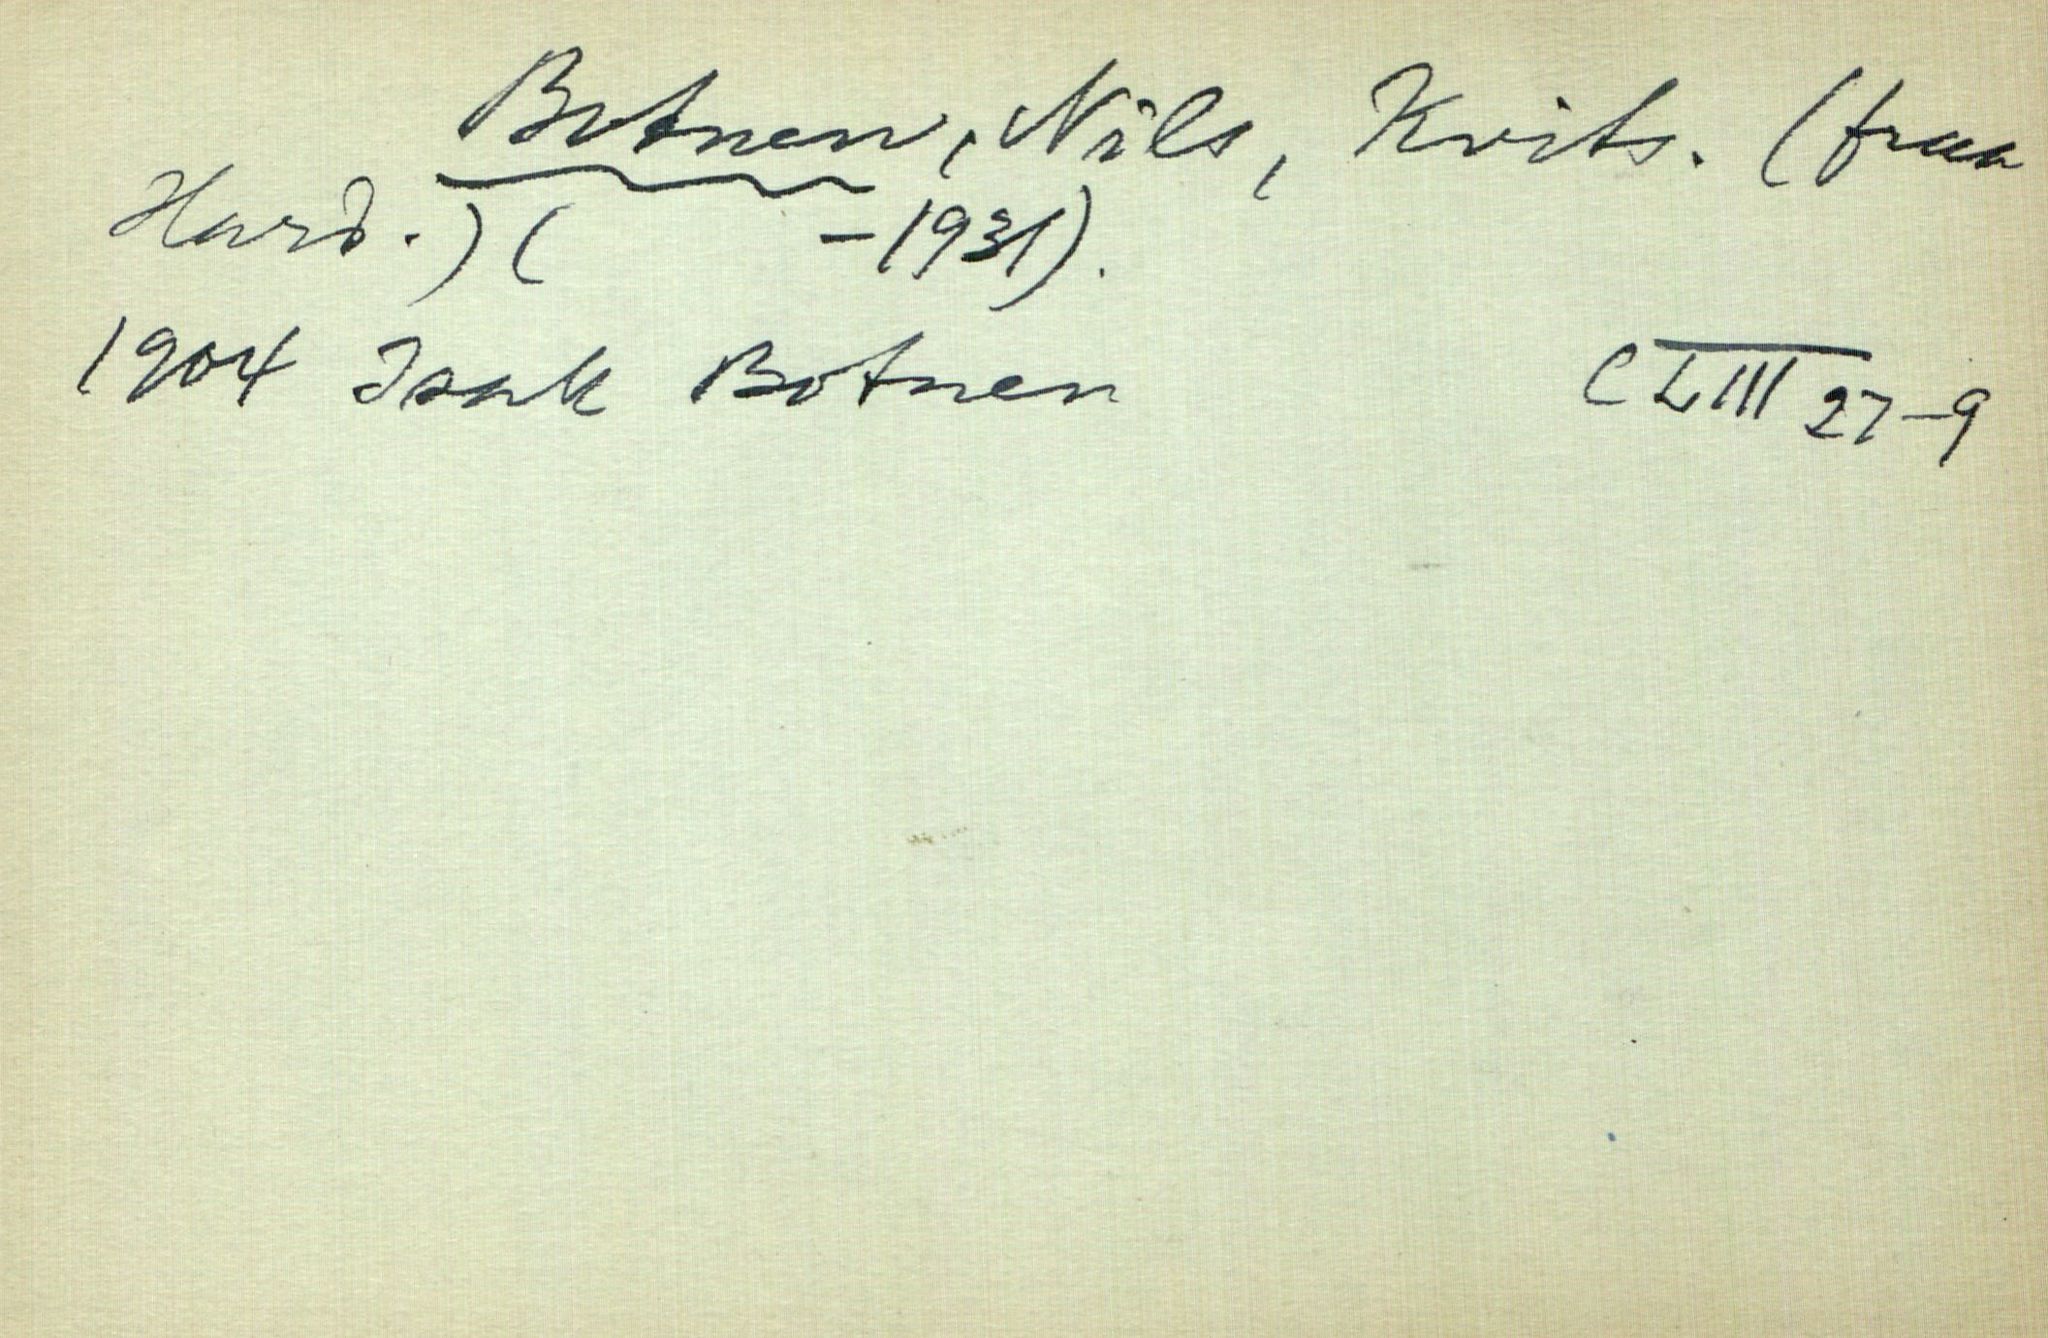 Botnen, Nils, Kvits. (fraa
Hard.) ( -1931).
1904 Isak Botnen CLIII 27-9